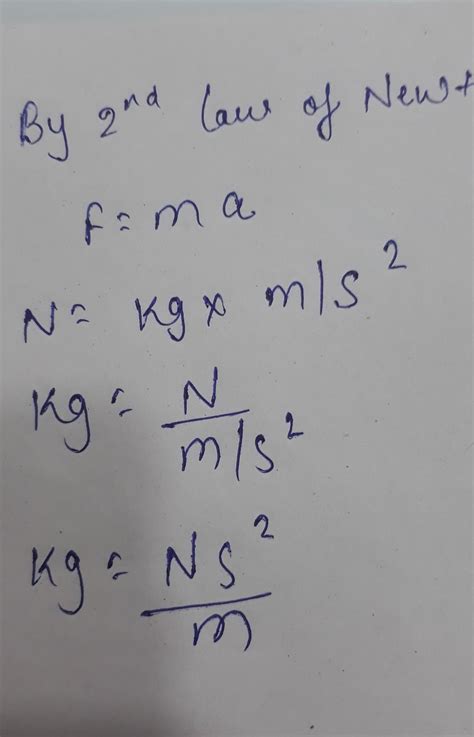 By 2nd law of Newt
F = ma
N = Kg x m/s²
Kg = N / m/s²
Kg = NS² / m